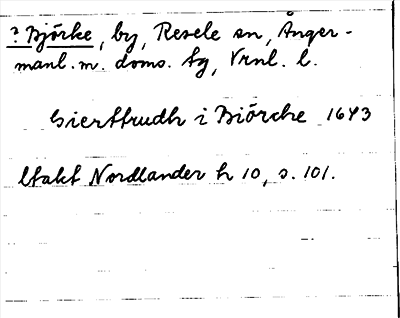 ? Björke, by, Resele sn, Ånger-
manl. m. doms. tg, Vrnl. l.
Gierttrudh i Biörche 1643
Utakt Nordlander h 10, s. 101.